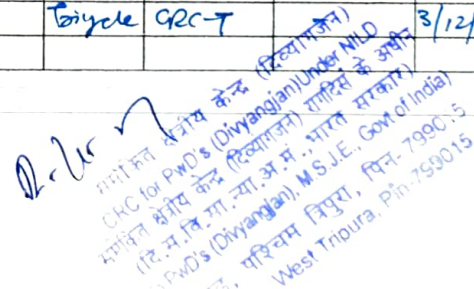 Tricycle CRC-T 3/12/
समेकित क्षेत्रीय केन्द्र (दिव्यांगजन)
CRC for PwD's (Divyangjan) Under NILD
समेकित क्षेत्रीय केन्द्र (दिव्यांगजन) रा.ग.दि.सं के अधीन
(दि.म.वि.मा.न्या.अ.मं., भारत सरकार)
PwD's (Divyangjan), M.S.J.E., Govt of India)
पश्चिम त्रिपुरा, पिन- 799015
West Tripura, Pin-799015